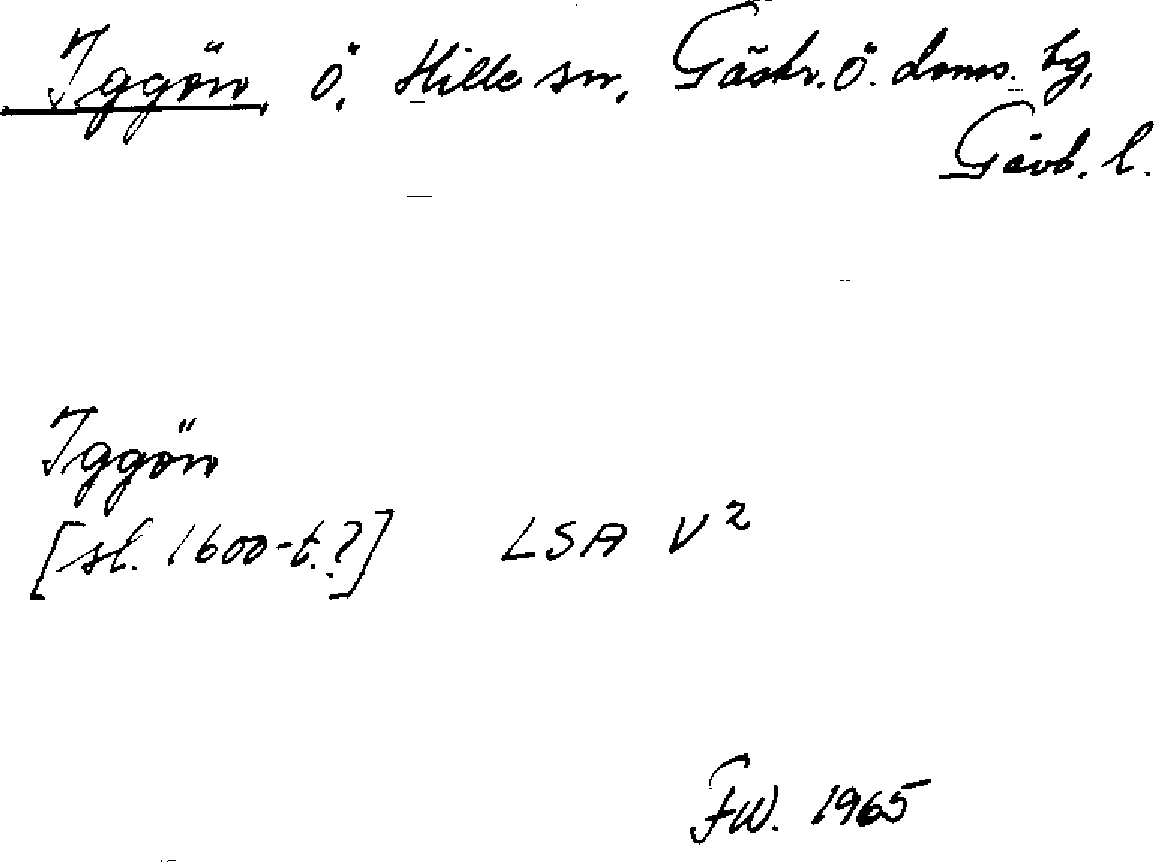 Iggön, ö, Hille sn, Gästr. Ö. doms. tg,
Gävb. l.
Iggön
[sl. 1600-t.?] LSA V²
FW. 1965